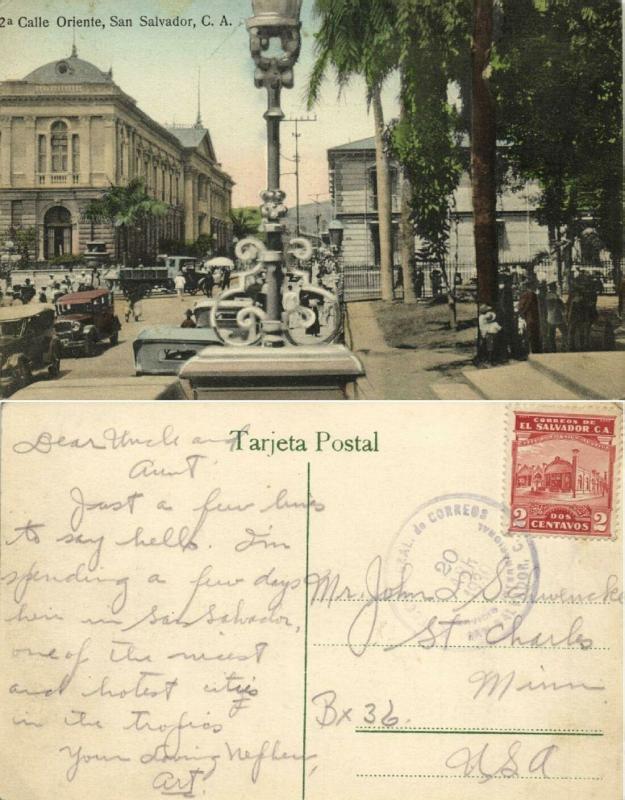 2ª Calle Oriente, San Salvador, C. A.
Tarjeta Postal
Dear Uncle and
Aunt.
Just a few lines
to say hello. I'm
spending a few days
here in San Salvador,
one of the nicest
and hotest cities
in the tropics
Your Loving Nephew,
Art.
CORREOS DE
EL SALVADOR C.A.
2 DOS 2
CENTAVOS
de CORREOS
20
Mr. John
St Charles
Minn.
Bx 36.
USA